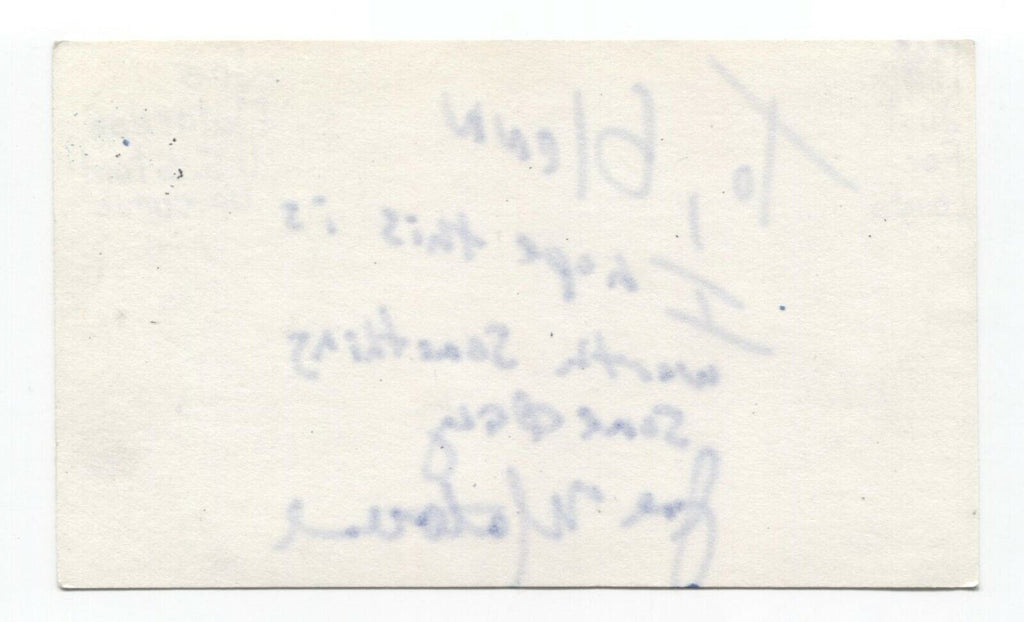 To, Glenn
I hope this is
worth something
some day
Joe